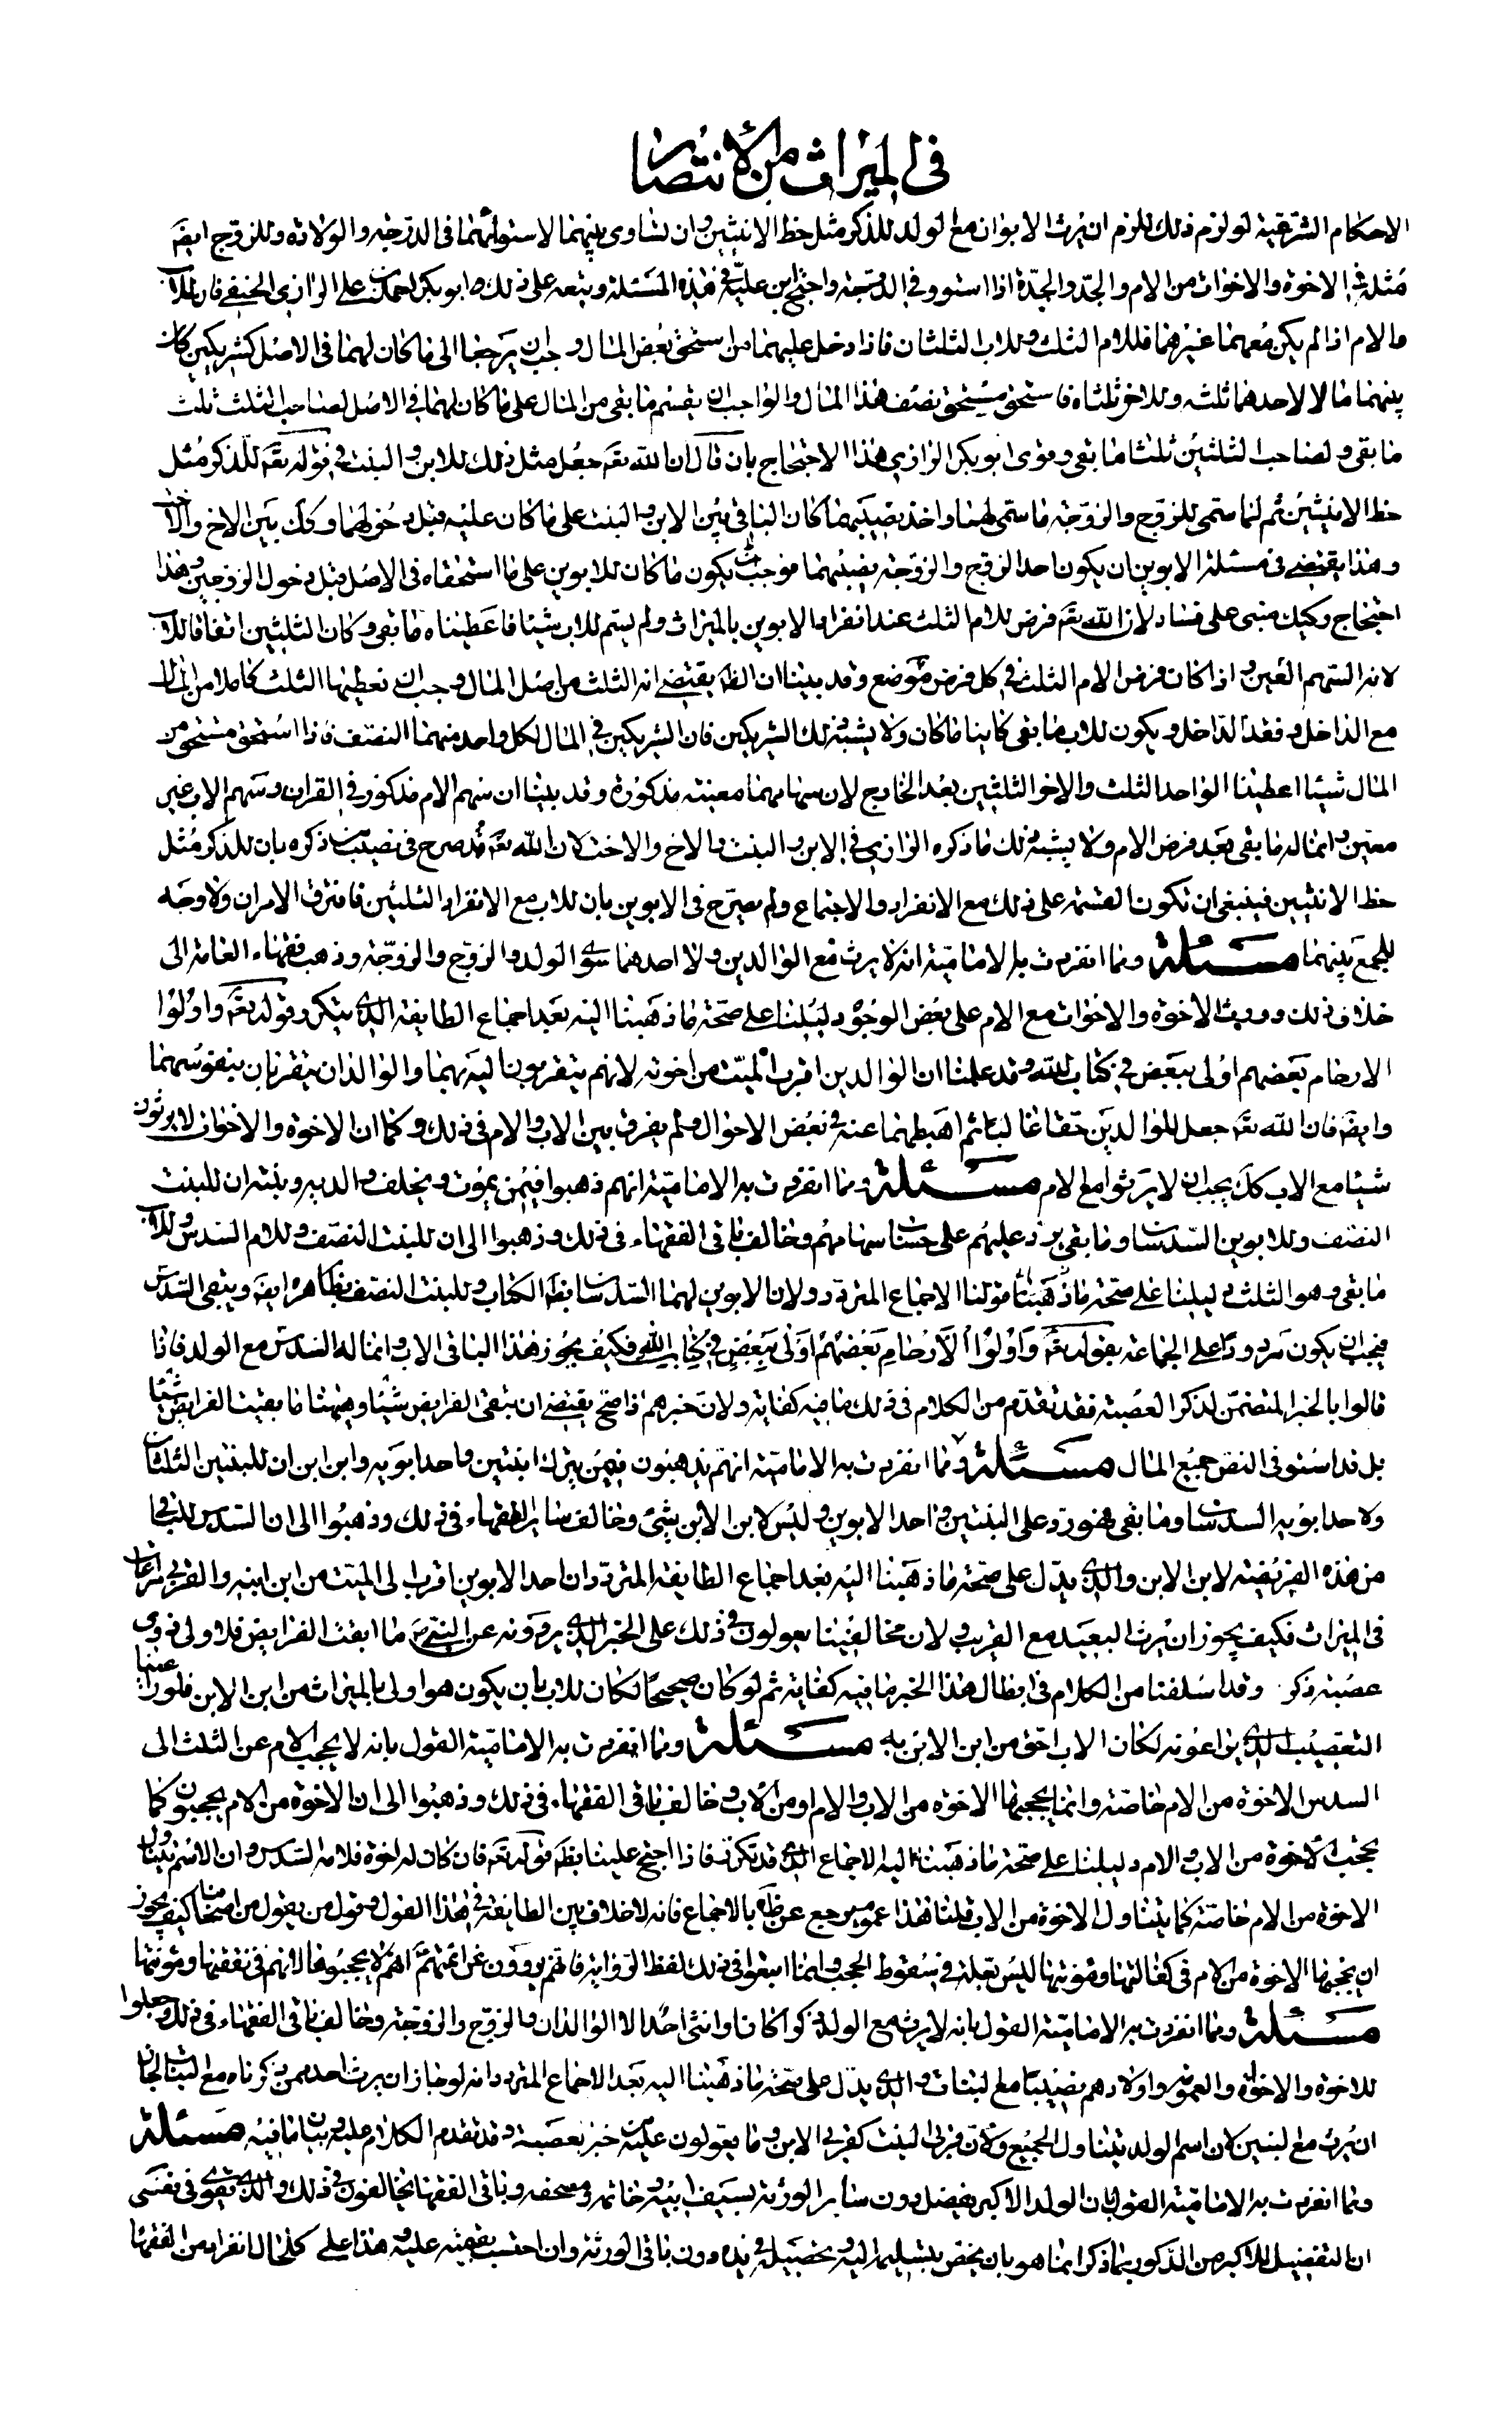 في الميراث من الانتصار
الاحكام الشرعية لو لزم ذلك للزم ان يرث الابوان مع الولد للذكر مثل حظ الانثيين وان تساوى بينهما لاستوائهما في الدرجة والولادة وللزوج ايضا
مثله في الاخوة والاخوات من الام والجد والجدة اذا استووا في الدرجة واحتج ابن علية في هذه المسئلة وتبعه على ذلك ابو بكر احمد بن علي الرازي الحنفي فان للاب
والام اذا لم يكن معهما غيرهما فللام الثلث وللاب الثلثان فاذا دخل عليهما من استحق بعض المال وجب ان يرجعا الى ما كان لهما في الاصل كشريكين كان
بينهما مال لاحدهما ثلثه وللاخر ثلثاه فاستحق مستحق نصف هذا المال والواجب ان يقسم ما بقى من المال على ما كان لهما في الاصل لصاحب الثلث ثلث
ما بقى ولصاحب الثلثين ثلثا ما بقى وقوى ابو بكر الرازي هذا الاحتجاج بان قال ان الله تعه جعل مثل ذلك للابن والبنت في قوله تعه للذكر مثل
حظ الانثيين ثم لما سمى للزوج والزوجة ما سمى لهما واخذ نصيبهما كان الباقي بين الابن والبنت على ما كان عليه قبل دخولهما وكك بين الاخ والاخت
وهذا يقتضي في مسئلة الابوين ان يكون اخذ الزوج والزوجة نصيبهما موجب ان يكون ما كان للابوين على ما استحقاه في الاصل قبل دخول الزوجين وهذا
احتجاج ركيك مبنى على فساد لان الله تعه فرض للام الثلث عند انفراد الابوين بالميراث ولم يسم للاب شيئا فاعطيناه ما بقى وكان الثلثين اتفاقا لا
لانه السهم المعين و اذا كان فرض الام الثلث في كل فرض موضع وقد بينا ان الظ يقتضي انه الثلث من اصل المال وجب ان نعطيها الثلث كاملا من المال
مع الداخل وفقد الداخل ويكون للاب ما بقى كائنا ما كان ولا يشبه ذلك الشريكين فان الشريكين في المال لكل واحد منهما النصف فاذا استحق مستحق من
المال شيئا اعطينا الواحد الثلث والاخر الثلثين بعد الخارج لان سهامهما معينة مذكورة وقد بينا ان سهم الام مذكور في القران وسهم الاب غير
معين و انما له ما بقى بعد فرض الام ولا يشبه ذلك ما ذكره الرازي في الابن والبنت والاخ والاخت لان الله تعه قد صرح في نصيب من ذكره بان للذكر مثل
حظ الانثيين فينبغي ان تكون القسمة على ذلك مع الانفراد والاجتماع ولم يصرح في الابوين بان للاب مع الانفراد الثلثين فافترق الامران ولا وجه
للجمع بينهما مسئلة ومما انفردت به الامامية انه لا يرث مع الوالدين ولا احدهما سوى الولد والزوج والزوجة وذهب فقهاء العامة الى
خلاف ذلك وورثوا الاخوة والاخوات مع الام على بعض الوجوه دليلنا على صحة ما ذهبنا اليه بعد اجماع الطايفة الذي يتكرر قوله تعه واولوا
الارحام بعضهم اولى ببعض في كتاب الله وقد علمنا ان الوالدين اقرب الى الميت من اخوته لانهم يتقربون اليه بهما والوالدان يتقربان بنفوسهما
وايضه فان الله تعه جعل للوالدين حقا عاليا ثم اهبطهما عنه في بعض الاحوال ولم يفرق بين الاب والام في ذلك وكما ان الاخوة والاخوات لا يرثون
شيئا مع الاب كك يجب ان لا يرثوا مع الام مسئلة ومما انفردت به الامامية انهم ذهبوا فيمن يموت ويخلف والديه وبنته ان للبنت
النصف وللابوين السدسان وما بقى يرد عليهم على حساب سهامهم وخالف باقي الفقهاء في ذلك وذهبوا الى ان للبنت النصف وللام السدس وللاب
ما بقى وهو الثلث دليلنا على صحة ما ذهبنا قولنا الاجماع المتردد ولان الابوين لهما السدسان بظ الكتاب وللبنت النصف بظاهره ايضه ويبقى السدس
فيجب ان يكون مردودا على الجماعة بقوله تعه واولوا الارحام بعضهم اولى ببعض في كتاب الله فكيف يجوز هذا الباقي الاب وانما له السدس مع الولد فاذا
قالوا بالخبر المتضمن لذكر العصبة فقد تقدم من الكلام في ذلك ما فيه كفاية ولان خبرهم اذا صح يقتضي ان تبقى الفرايض شيئا وههنا ما بقيت الفرايض شيئا
بل قد استوفى النص جميع المال مسئلة ومما انفردت به الامامية انهم يذهبون فيمن يترك ابنتين واحد ابويه وابن ابن ان للبنتين الثلثان
ولاحد ابويه السدس وما بقى فهو رد على البنتين واحد الابوين وليس لابن الابن شئ وخالف ساير الفقهاء في ذلك وذهبوا الى ان السدس الباقي
من هذه الفريضة لابن الابن والذي يدل على صحة ما ذهبنا اليه بعد اجماع الطايفة المتردد ان احد الابوين اقرب الى الميت من ابن ابنه والقربى مراعاة
في الميراث فكيف يجوز ان يرث البعيد مع القريب ولان مخالفينا يعولون في ذلك على الخبر الذي يروونه عن النبي ص ما ابقت الفرايض فلاولى ذوى
عصبة ذكر وقد اسلفنا من الكلام في ابطال هذا الخبر ما فيه كفاية ثم لو كان صحيحا لكان للاب بان يكون هو اولى بالميراث من ابن الابن فلو راعينا
التعصيب الذي يراعونه لكان الاب احق من ابن الابن به مسئلة ومما انفردت به الامامية القول بانه لا يحجب الام عن الثلث الى
السدس الاخوة من الام خاصة وانما يحجبها الاخوة من الاب والام او من الاب وخالف باقي الفقهاء في ذلك وذهبوا الى ان الاخوة من الام يحجبون كما
يحجب الاخوة من الاب والام دليلنا على صحة ما ذهبنا اليه الاجماع الذي قد تكرر فاذا احتج علينا بظ قوله تعه فان كان له اخوة فلامه السدس وان الاسم يتناول
الاخوة من الام خاصة كما يتناول الاخوة من الاب قلنا هذا عموم يرجع عن ظاهره بالاجماع فانه لا خلاف بين الطايفة في هذا القول وقول من يقول من اصحابنا كيف يجوز
ان يحجبها الاخوة من الام في كفالتها ومؤنتها ليس بعلة في سقوط الحجب وانما اتبعوا في ذلك لفظ الرواية فانهم يروون عن ائمتهم انهم لا يحجبونها لانهم في نفقتها ومؤنتها
مسئلة ومما انفردت به الامامية القول بانه لا يرث مع الولد ذكرا كان او انثى احد الا الوالدان والزوج والزوجة وخالف باقي الفقهاء في ذلك وجعلوا
للاخوة والاخوات والعمومة واولادهم نصيبا مع البنات والذي يدل على صحة ما ذهبنا اليه بعد الاجماع المتردد انه لو جاز ان يرث احد ممن ذكرناه مع البنات لجاز
ان يرث مع البنين لان اسم الولد يتناول الجميع ولان قربى البنت كقربى الابن وما يعولون عليه من خبر العصبة قد تقدم الكلام عليه وبينا ما فيه مسئلة
ومما انفردت به الامامية القول بان الولد الاكبر يفضل دون ساير الورثة بسيف ابيه وخاتمه ومصحفه وباقي الفقهاء يخالفون في ذلك والذي يقوى في نفسي
ان التفضيل للاكبر من الذكور بما ذكر انما هو بان يخص بتسليمه اليه وتحصيله في يده دون باقي الورثة وان احتسب بقيمته عليه وهذا على كل حال انفراد من الفقهاء